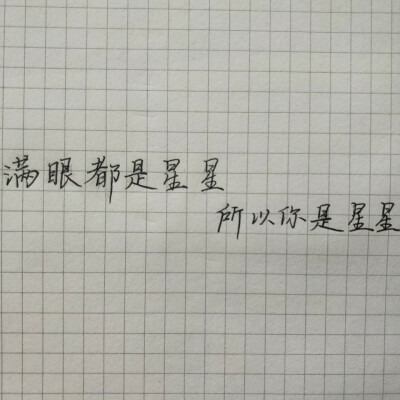 满眼都是星星
所以你是星星